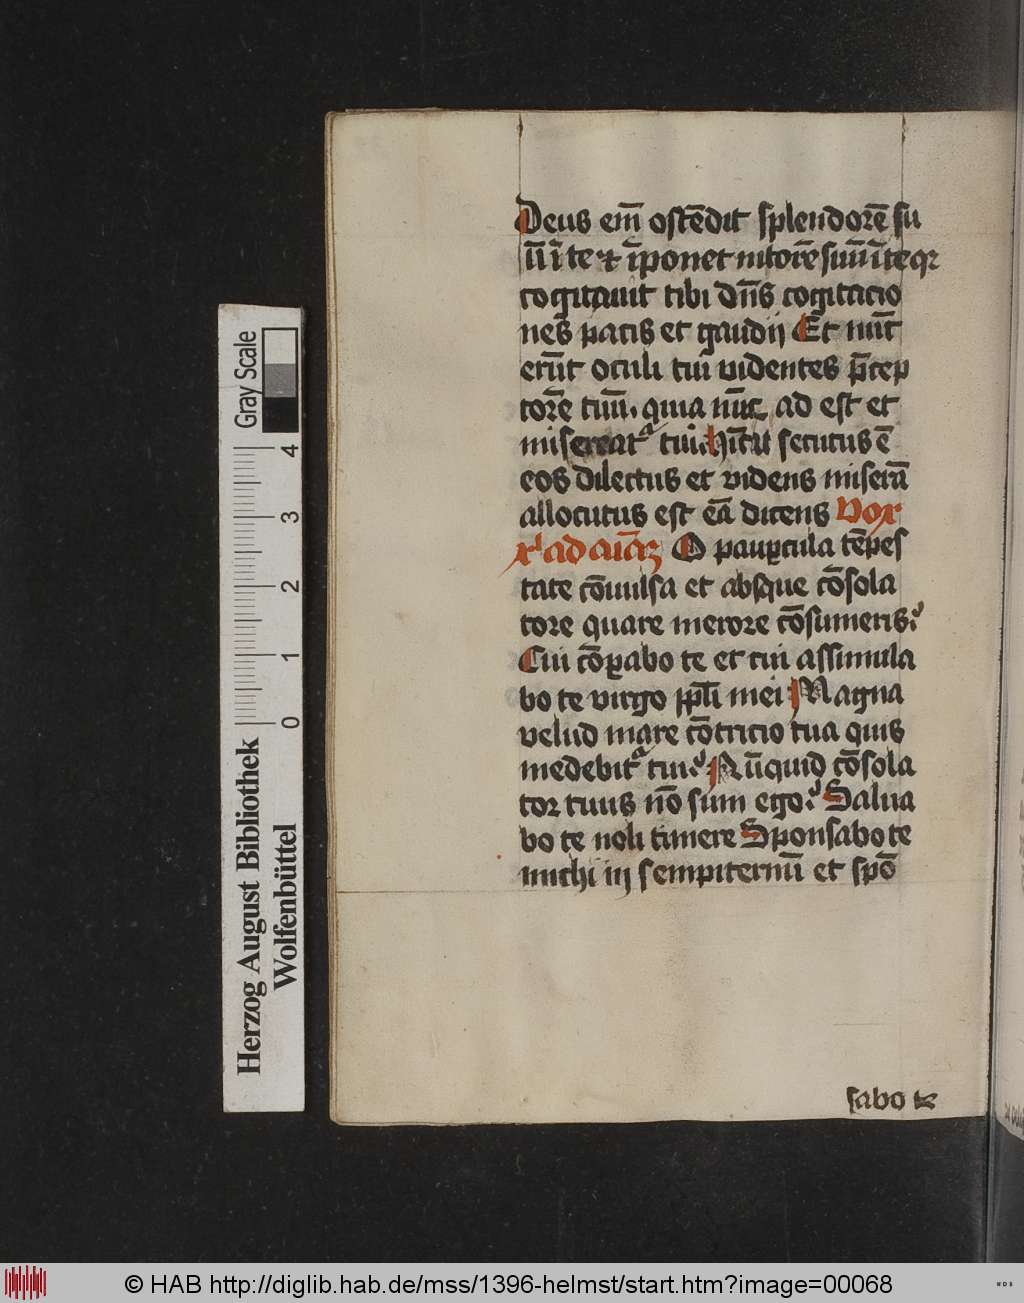 Deus em̄ ostēdit splendorē su
ū ī te et īponet nitorē suū ī te qr
cogitauit tibi dn̄s cogitacio
nes pacis et gaudij Et nūc
erūt oculi tui uidentes p̄cep
torē tuū. quia nūc ad est et
misereatᵘ tui. secutus ē
eos dilectus et videns miserā
allocutus est eā dicens Vox
xi ad aīaꝫ O paup̱cula tēpes
tate cōuulsa et absque cōsola
tore quare merore cōsumeris?
Cui cōp̱abo te et cui assimula
bo te virgo pp̄li mei Magna
velud mare cōtricio tua quis
medebitᵘ tui? Nūquid cōsola
tor tuus nō sum ego? Salua
bo te noli timere Sponsabo te
michi in sempiternū et spō
sabo te
Gray Scale
0 1 2 3 4
Herzog August Bibliothek
Wolfenbüttel
© HAB http://diglib.hab.de/mss/1396-helmst/start.htm?image=00068